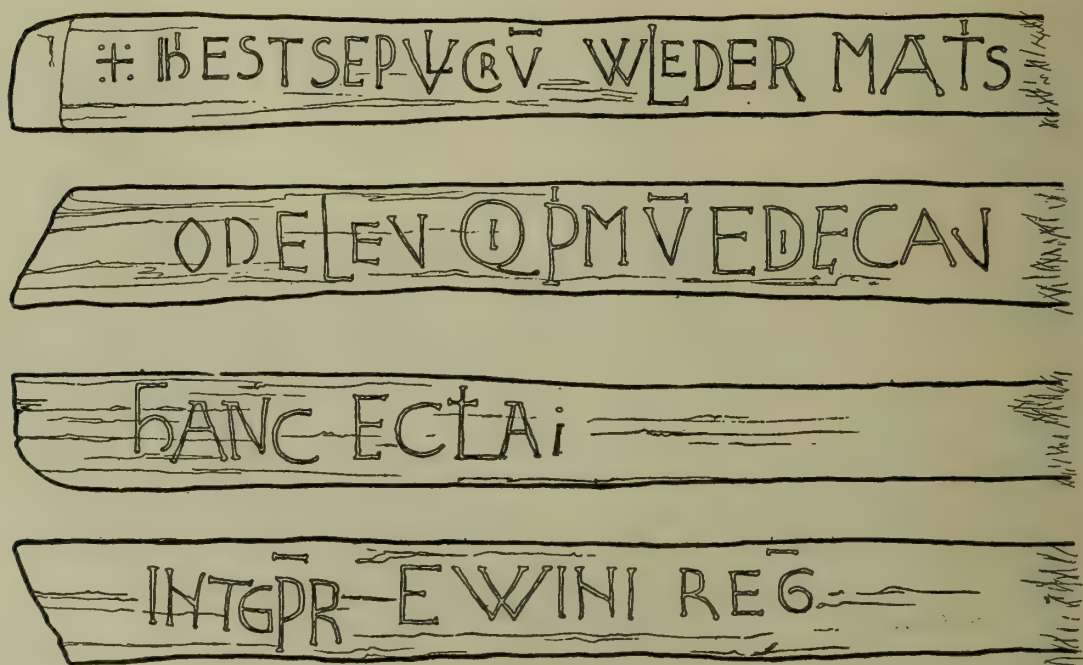 ⁜ ħESTSEPVŁCRV̄ WLEDER MAṪS
ODELEV QI PMV̄ EDIFECAV
hANC ECŁAi
INTGP̄R–EWINI REḠ